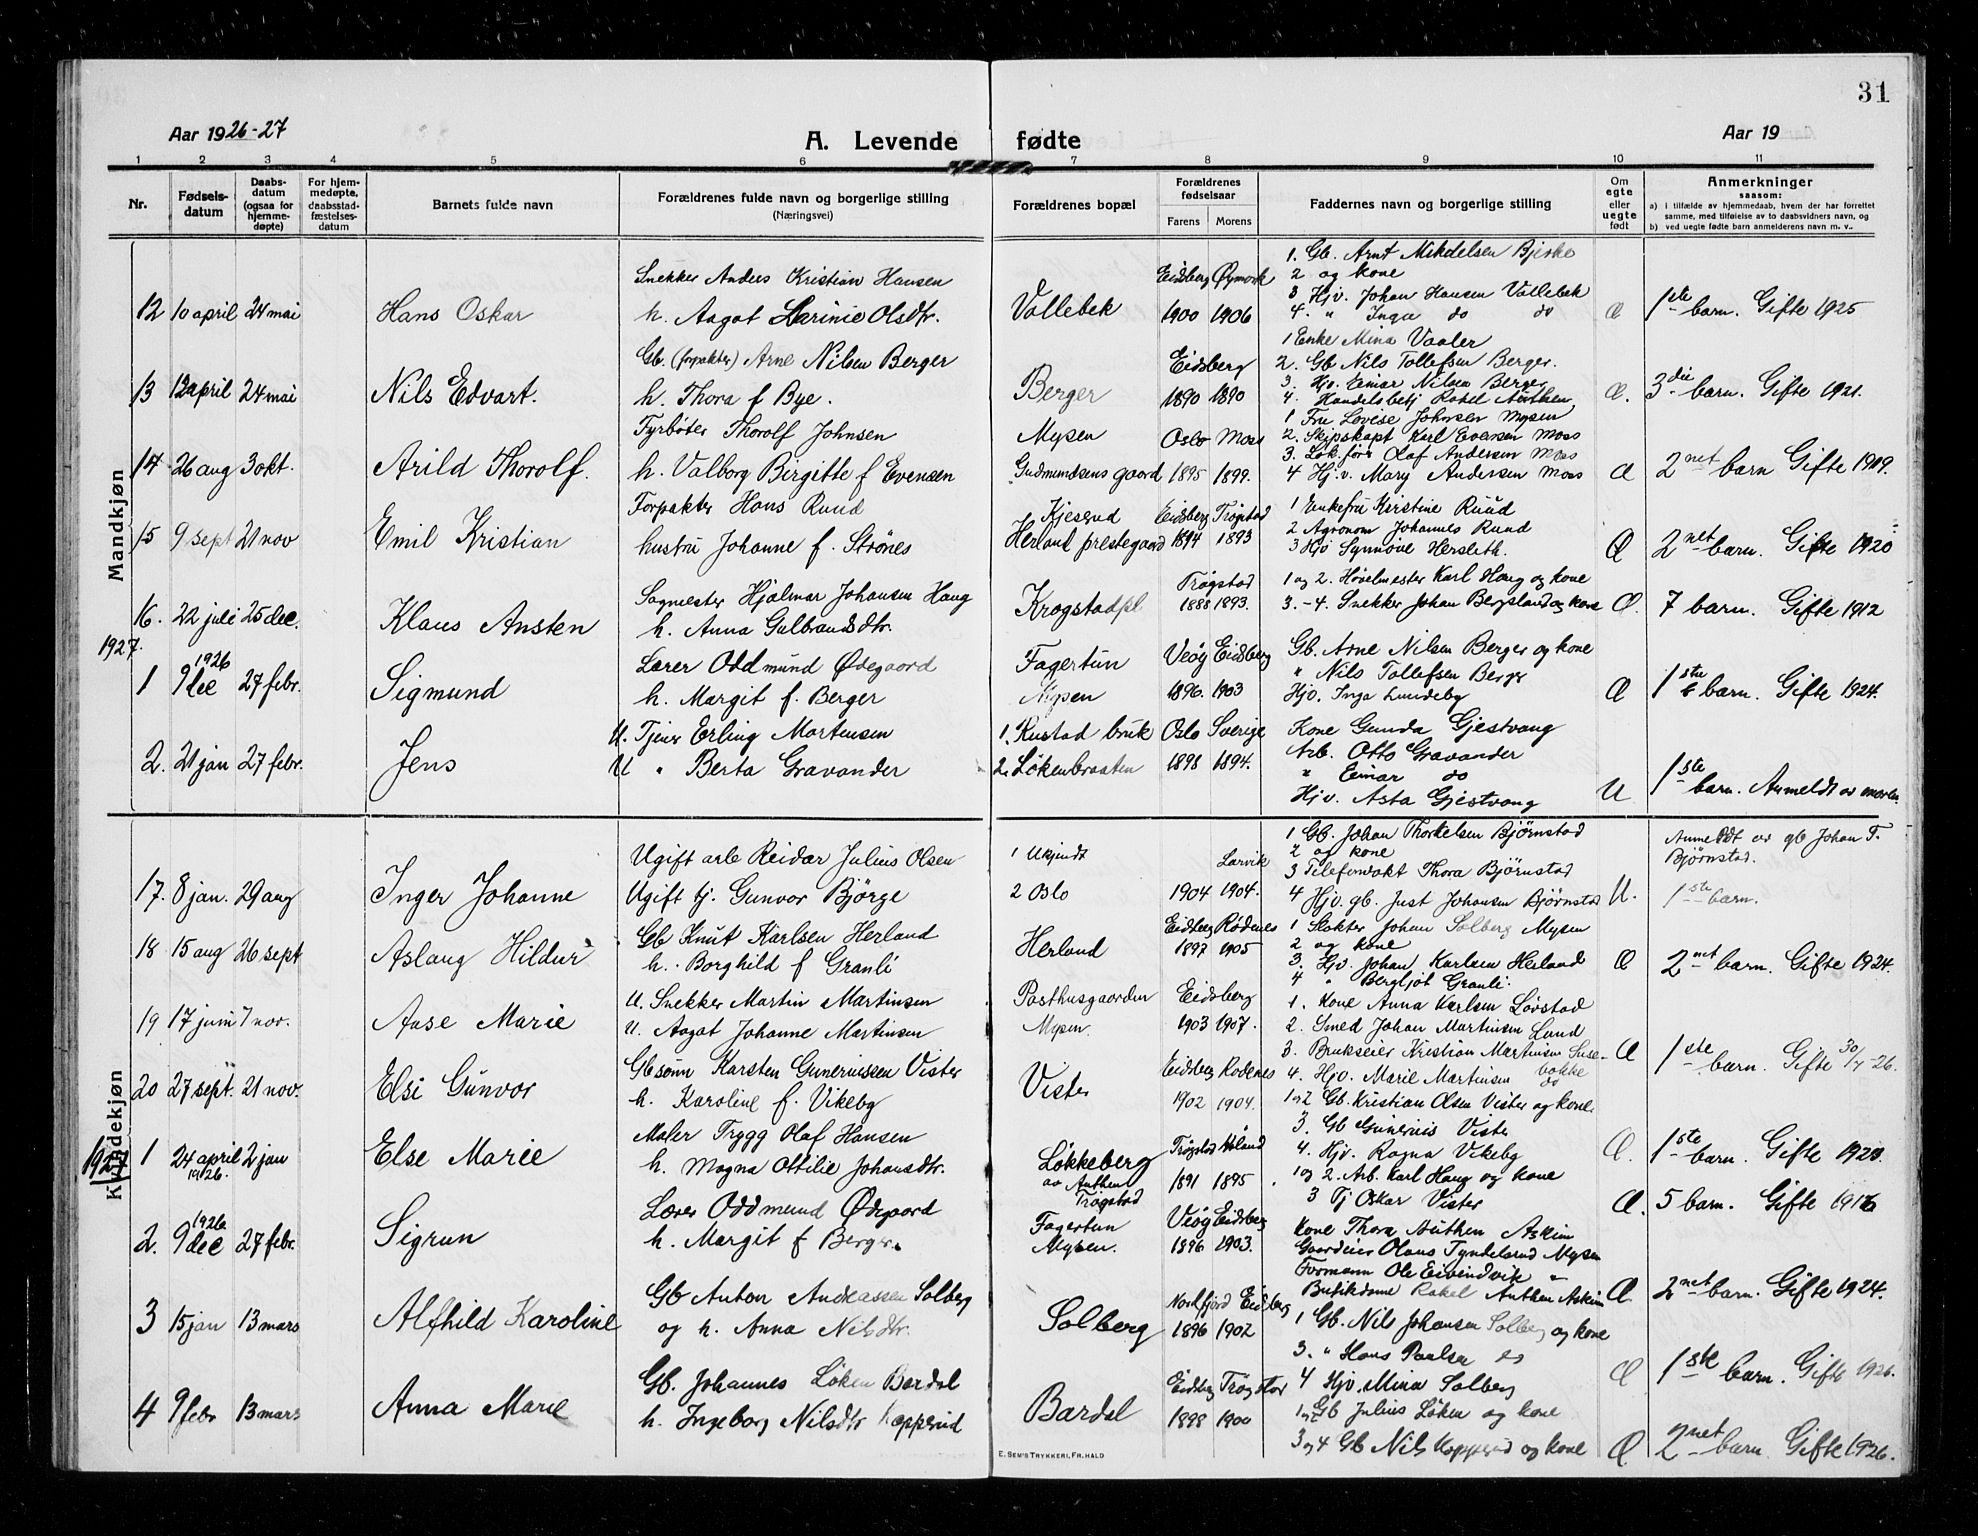 31
Aar 1926-27
A. Levende fødte
Aar 19
1 2 3 4 5 6 7 8 9 10 11
Nr.
Fødsels-
datum
Daabs-
datum
(ogsaa for
hjemme-
døpte)
For hjem-
medøpte,
daabsstad-
fæstelses-
datum
Barnets fulde navn
Forældrenes fulde navn og borgerlige stilling
(Næringsvei)
Forældrenes bopæl
Forældrenes
fødselsaar
Farens Morens
Faddernes navn og borgerlige stilling
Om
egte
eller
uegte
født
Anmerkninger
saasom:
a) i tilfælde av hjemmedaab, hvem der har forrettet
samme, med tilføielse av to daabsvidners navn, og
b) ved uegte fødte barn anmelderens navn m. v..
Mandkjøn
12 10 april 24 mai
Hans Oskar
Snekker Anders Kristian Hansen
h. Aagot Larinie Olsdtr.
Vallebek
Eidsberg Øymark
1900 1906
1. Gb. Arnt Mikdelsen Bjerke
2 og kone
3 Hjv. Johan Hansen Vallebek
4. " Inga do do
1ste barn. Gifte 1925
13 12 april 24 mai
Nils Edvart.
Gb. (forpakter) Arne Nilsen Berger
h. Thora f Bye.
Berger
Eidsberg
1890 1890
1 Enke Mina Vaaler
2. Gb Nils Tollefsen Berger.
3. Hjv. Einar Nilsen Berger
4. Handelsbetj Rakel Authen
3die barn. Gifte 1921.
14 26 aug 3 okt.
Arild Thorolf.
Fyrbøter Thorolf Johnsen
h. Valborg Birgitte f Evensen
Mysen
Gudmundsens gaard
Oslo Moss
1895 1899.
1 Fru Lovise Johnsen Mysen
2. Skipskapt Karl Evensen Moss
3. Lok.fører Olaf Andersen Moss
4 Hj.v. Mary Andersen Moss
2net barn Gifte 1919.
15 9 sept 21 nov
Emil Kristian
Forpakter Hans Ruud
hustru Johanne f. Strønes
Kjeserud
Herland prestegaard
Eidsberg Trøgstad
1894 1893
1 Enkefru Kirstine Ruud
2 Agronom Johannes Ruud
3 Hjv Synnøve Hersleth.
2net barn. Gifte 1920
16. 22 juli 25 dec.
Klaus Ansten
Sagmester Hjalmar Johansen Haug
h. Anna Gulbrandsdtr.
Krogstadpl
Trøgstad
1888 1893.
1 og 2. Høvelmester Karl Haug og kone
3.-4. Snekker Johan Bergsland og kone
7 barn. Gifte 1912
1927.
1 9 dec 1926 27 febr.
Sigmund
Lærer Oddmund Ødegaard
h. Margit f. Berger
Fagertun
Mysen
Veøy Eidsberg
1896. 1903
Gb. Arne Nilsen Berger og kone
" Nils Tollefsen Berger
Hjv. Inga Lundeby
1ste barn. Gifte 1924.
2. 21 jan 27 febr.
Jens
U. Tjener Erling Martensen
U " Berta Gravander
1. Kustad bruk
2. Løkenbraaten
Oslo Sverige
1898 1894.
Kone Gunda Gjestvang
Arb. Otto Gravander
" Einar do
Hjv. Asta Gjestvang
U
1ste barn. Anmeldt av moren.
Kvindekjøn
17. 8 jan. 29 aug
Inger Johanne
Ugift arb Reidar Julius Olsen
Ugift tj. Gunvor Bjørge
1 Ukjendt
2 Oslo
Larvik
1904 1904.
1 Gb. Johan Thorkelsen Bjørnstad
2 og kone
3 Telefonvakt Thora Bjørnstad
4 Hjv. gb. Just Johansen Bjørnstad
U.
Anmeldt av gb Johan T. Bjørnstad.
1ste barn.
18 15 aug 26 sept
Aslaug Hildur
Gb Knut Karlsen Herland
h. Borghild f Granli
Herland
Eidsberg Rødenes
1897 1905
1 Slakter Johan Solberg Mysen
2 og kone
3. Hjv. Johan Karlsen Herland
4 " Bergljot Granli.
2net barn. Gifte 1924.
19 17 juni 7 nov.
Aase Marie
U. Snekker Martin Martinsen
U. Aagot Johanne Martinsen
Posthusgaarden
Mysen.
Eidsberg
1903 1907.
1. Kone Anna Karlsen Løvstad
2. Smed Johan Martinsen Lund
3. Brukseier Kristian Martinsen Susebakke
4. Hjv. Marie Martinsen do
1ste barn. Gifte 30/7-26.
20 27 sept. 21 nov.
Elsi Gunvor
Gbsønn Karsten Gunerniussen Vister
h. Karoline f. Vikeby
Vister
Eidsberg Rødenes
1902 1904.
1 og 2 Gb. Kristian Olsen Vister og kone.
3. Gb Gunerius Vister
4. Hjv. Ragna Vikeby
1ste barn. Gifte 1920.
1927
1 24 april 1926. 2 jan
Else Marie
Maler Trygg Olaf Hansen
h. Magna Ottilie Johansdtr.
Løkkeberg
av Authen
Trøgstad
Trøgstad Høland
1891 1895
1 og 2. Arb. Karl Haug og kone
3 Tj Oskar Vister
5 barn. Gifte 1916
2. 9 dec 1926 27 febr.
Sigrun
Lærer Oddmund Ødegaard
h. Margit f Berger.
Fagertun
Mysen.
Veøy Eidsberg
1896 1903.
Kone Thora Authen Askim
Gaardeier Olaus Tyndelsrud Mysen
Formann Ole Eivindvik "
Butikdame Rakel Authen Askim
2net barn. Gifte 1924.
3 15 jan 13 mars
Alfhild Karoline
Gb Anton Andreassen Solberg
og h. Anna Nilsdtr.
Solberg
Nordfjord Eidsberg
1896 1902
1 Gb. Nils Johansen Solberg og kone
3. " Hans Paulsen do
4 Hjv. Mina Solberg
1ste barn. Gifte 1926.
4 9 febr 13 mars
Anna Marie
Gb. Johannes Løken Bardal
h. Ingeborg Nilsdtr Kopperud
Bardal
Eidsberg Trøgstad
1898 1900
1 og 2 Gb Julius Løken og kone
3 og 4 Gb Nils Kopperud og kone
2net barn. Gifte 1926.
E. SEM'S TRYKKERI, FR. HALD